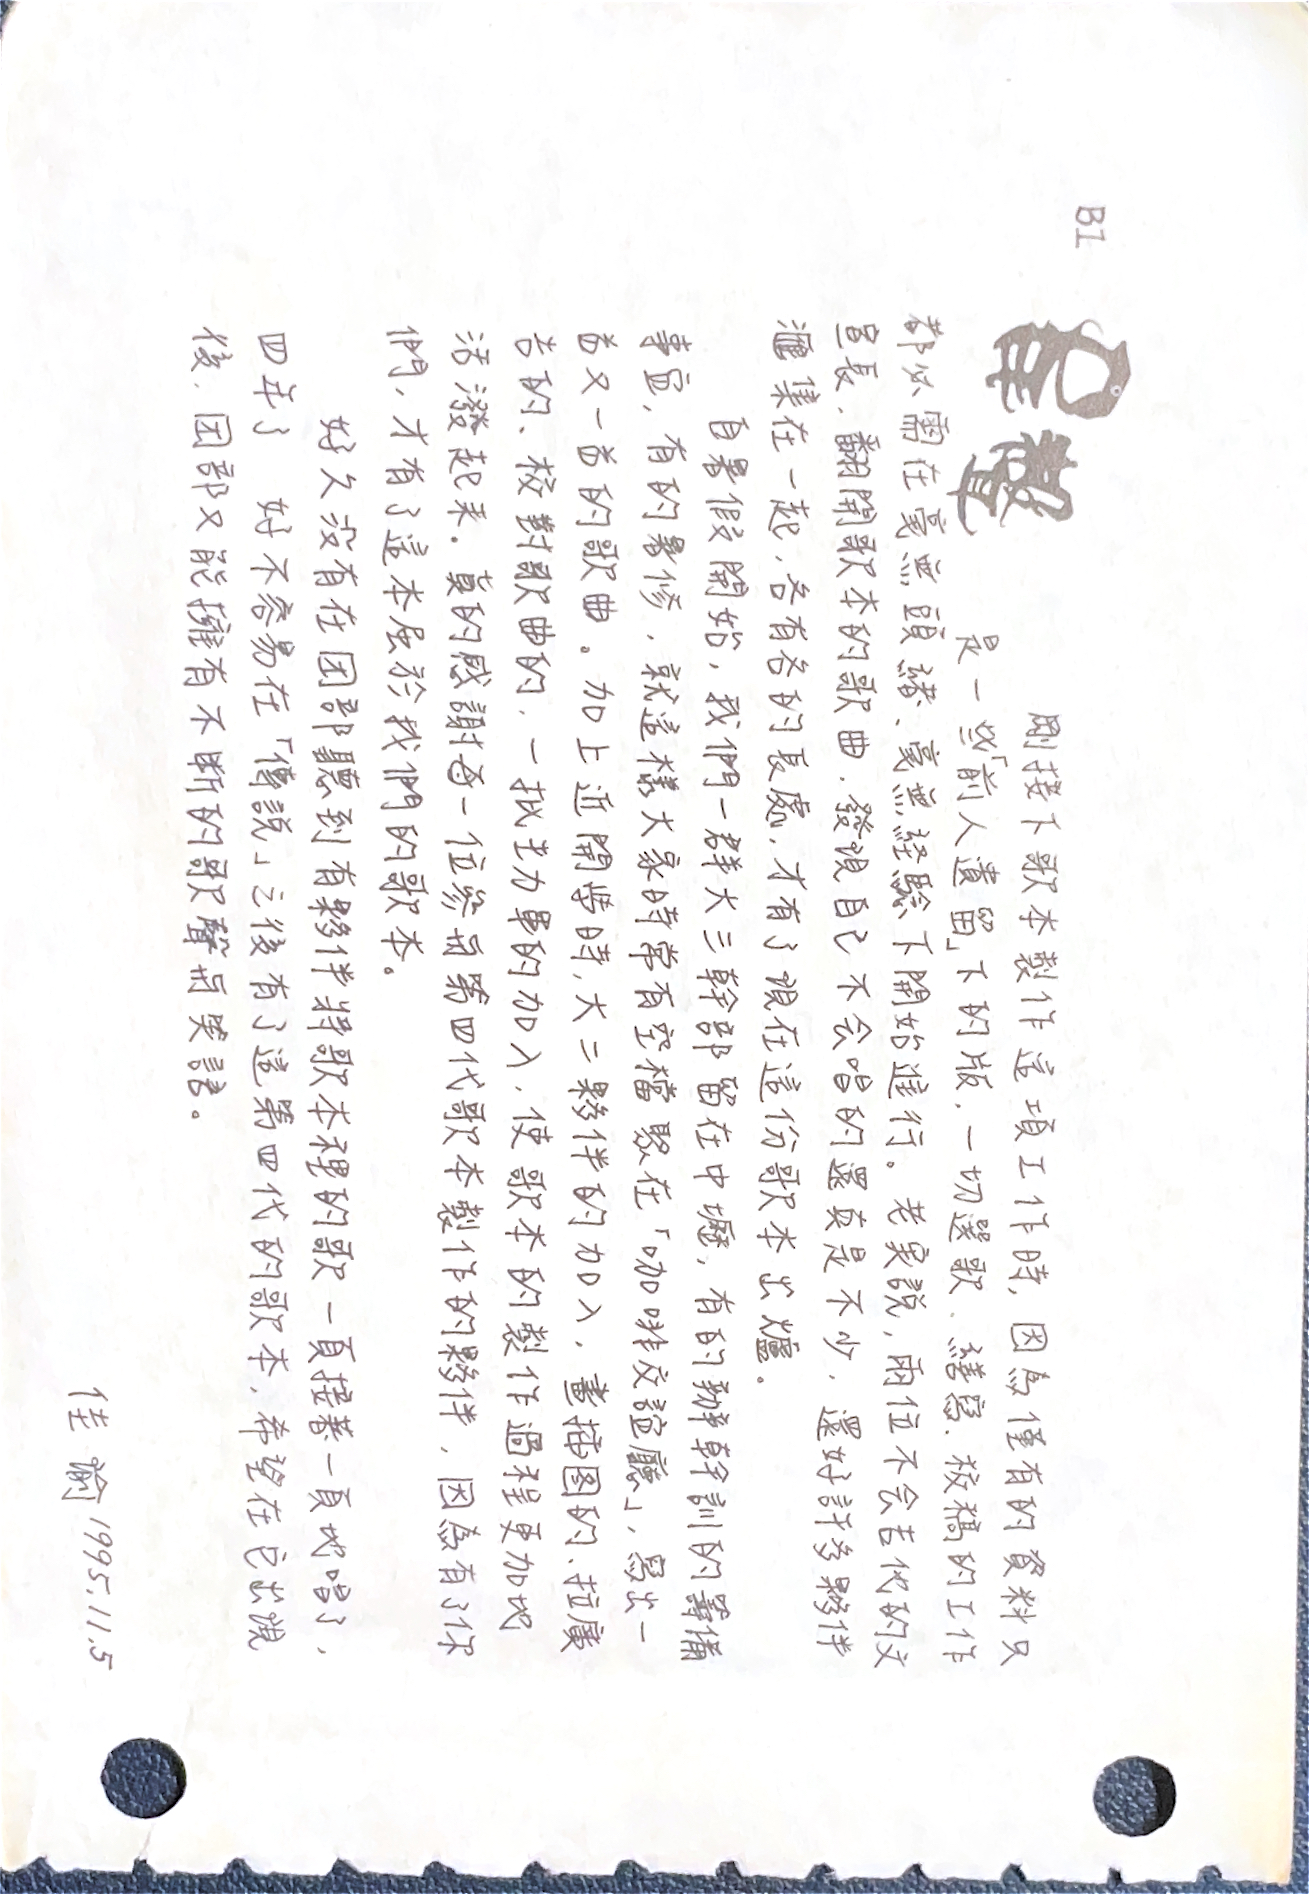 B1
尾聲
剛接下歌本製作這項工作時,因為僅有的資料只
是一些「前人遺留」下的版,一切選歌、繕寫、校稿的工作
都必需在毫無頭緒、毫無経驗下開始進行。老実説,兩位不会吉他的文
宣長,翻開歌本的歌曲,發現自己不会唱的還真是不少,還好許多夥伴
滙集在一起,各有各的長處,才有了現在這份歌本出爐。
自暑假開始,我們一群大三幹部留在中壢,有的辦幹訓的籌備
事宜,有的暑修,就這樣大家時常有空檔聚在「咖啡交誼廳」,寫出一
首又一首的歌曲。加上近開學時,大二夥伴的加入,畫插图的、拉廣
告的、校對歌曲的,一批生力軍的加入,使歌本的製作過程更加地
活潑起来。真的感謝每一位參与第四代歌本製作的夥伴,因為有了你
們,才有了這本屬於我們的歌本。
好久沒有在团部聽到有夥伴將歌本裡的歌一頁接著一頁地唱了,
四年了 好不容易在「傳説」之後有了這第四代的歌本,希望在它出現
後,团部又能擁有不斷的歌聲与笑語。
佳瑜 1995.11.5